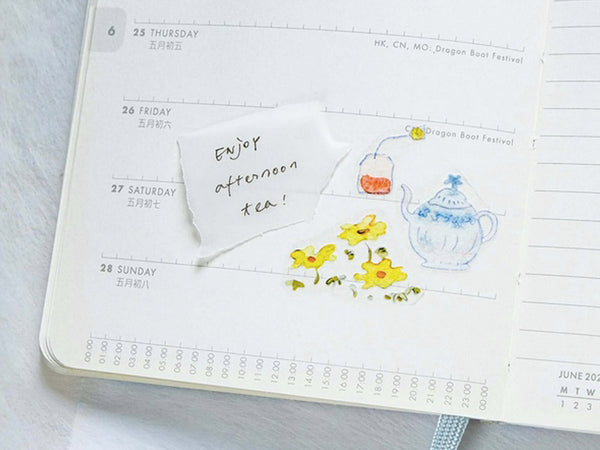 6
25 THURSDAY
五月初五
HK, CN, MO: Dragon Boat Festival
26 FRIDAY
五月初六
Dragon Boat Festival
Enjoy
afternoon
tea!
27 SATURDAY
五月初七
28 SUNDAY
五月初八
00:00 01:00 02:00 03:00 04:00 05:00 06:00 07:00 08:00 09:00 10:00 11:00 12:00 13:00 14:00 15:00 16:00 17:00 18:00 19:00 20:00 21:00 22:00 23:00 00:00
JUNE 202
M T W
1 2 3